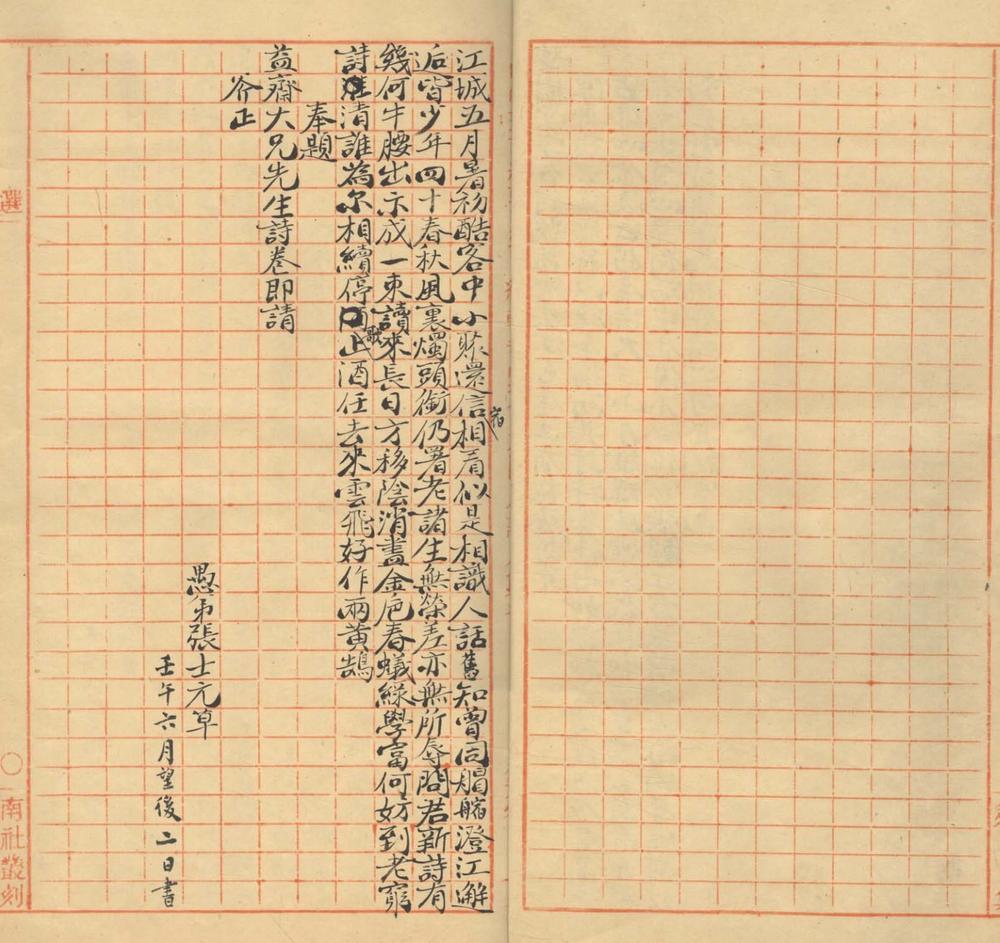 江城五月暑初酷客中小賬還信宿相看似是相識人話舊知曾同場館澄江邂
后皆少年四十春秋風裏燭頭銜仍署老諸生無榮差亦無所辱問君新詩有
幾何牛腰出示成一束讀來長日方移陰消盡金卮春蟻綠學富何妨到老窮
詩清誰為尔相續停歌止酒任去來雲飛好作兩黃鵠
奉題
益齋大兄先生詩卷即請
斧正
愚弟張士元草
壬午六月望後二日書
選
○
南社叢刻